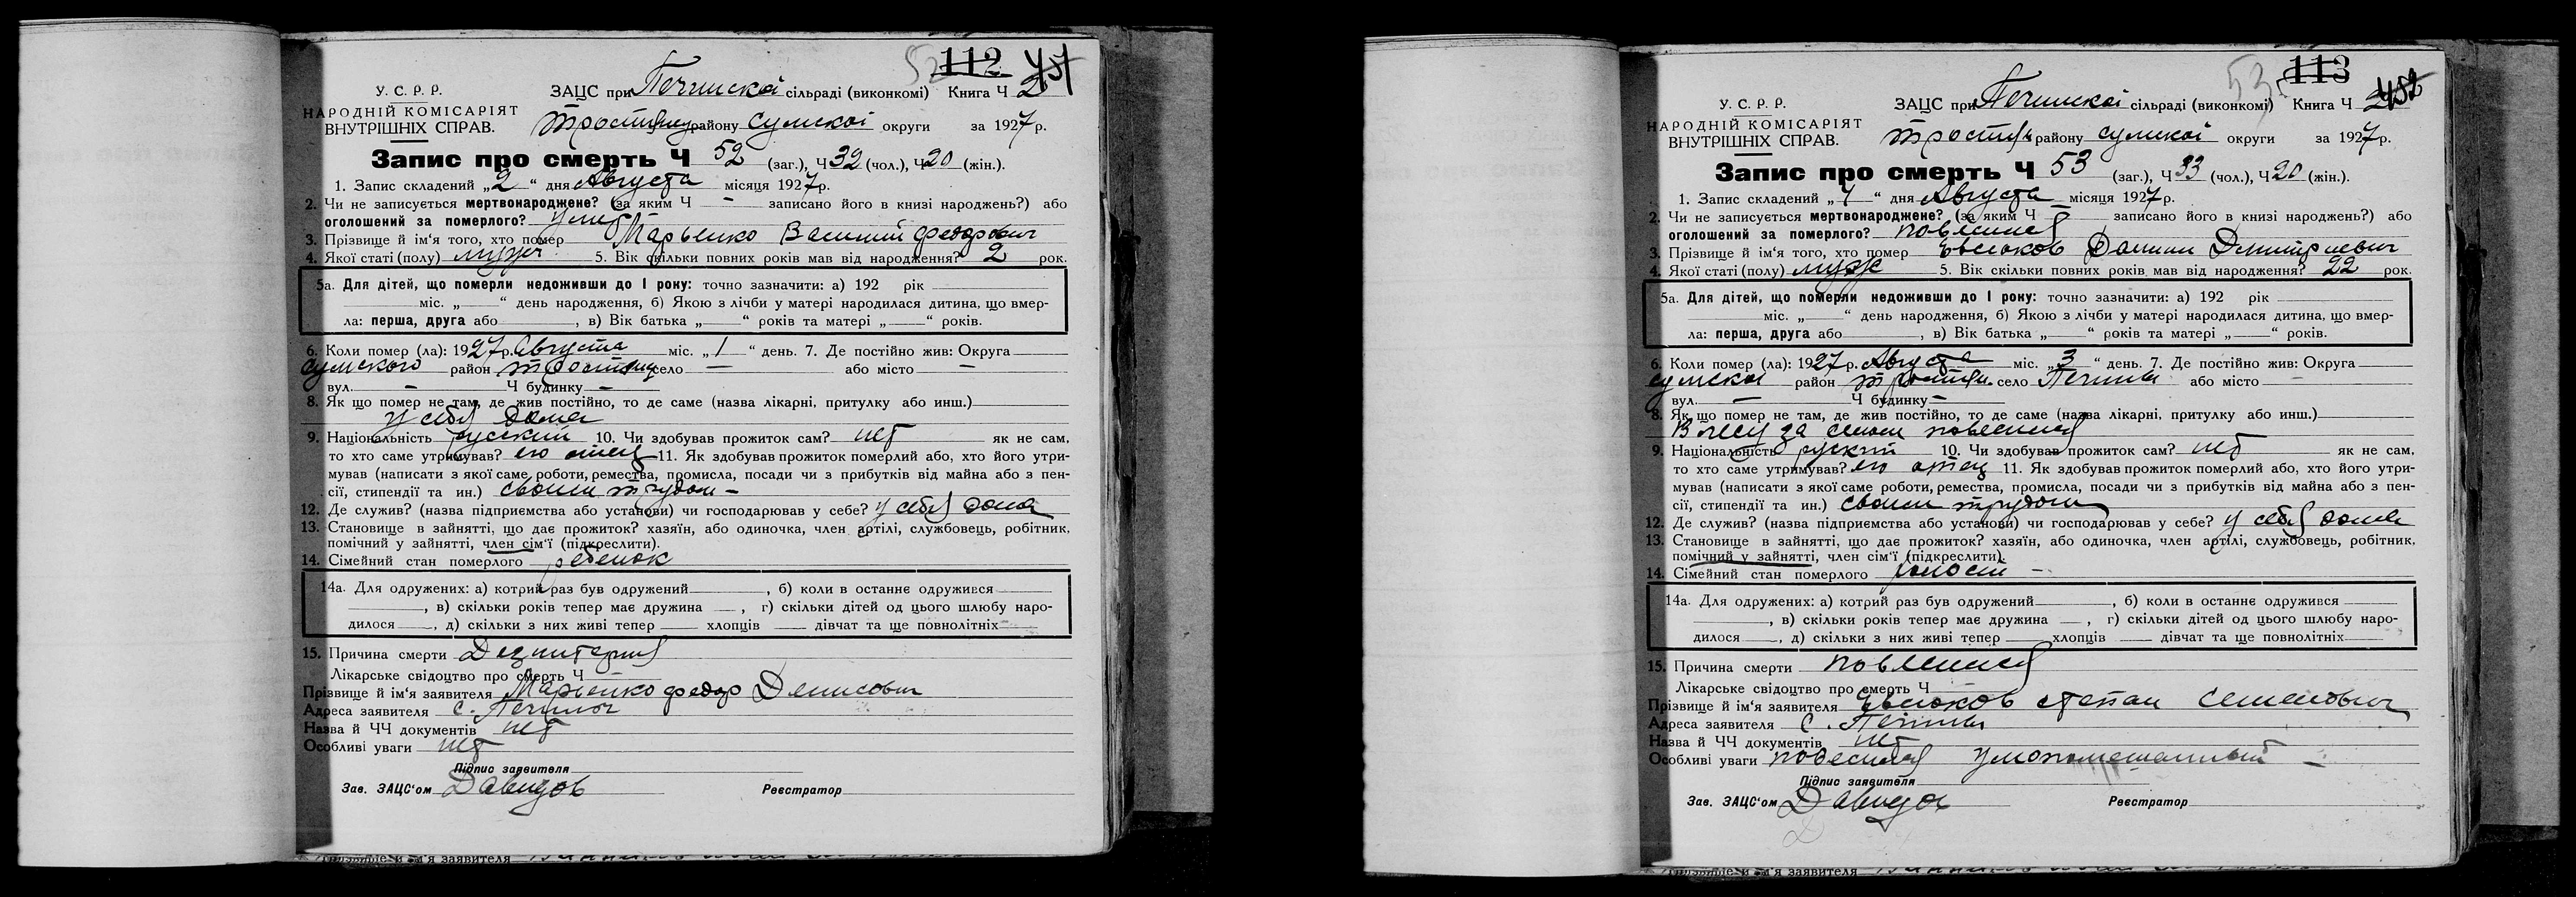 52 112 451
У. С. Р. Р.
НАРОДНІЙ КОМІСАРІЯТ
ВНУТРІШНІХ СПРАВ.
ЗАЦС при Печинской сільраді (виконкомі) Книга Ч 2
Тростянец району Сумской округи за 1927 р.
Запис про смерть Ч 52 (заг.), Ч 32 (чол.), Ч 20 (жін.).
1. Запис складений „ 2 “ дня Августа місяця 1927 р.
2. Чи не записується мертвонароджене? (за яким Ч — записано його в книзі народжень?) або
оголошений за померлого? умер
3. Прізвище й ім‘я того, хто помер Марьенко Василий Федорович
4. Якої статі (полу) мужч 5. Вік скільки повних років мав від народження? 2 рок.
5а. Для дітей, що померли недоживши до І року: точно зазначити: а) 192 рік
міс. „ “ день народження, б) Якою з лічби у матері народилася дитина, що вмер-
ла: перша, друга або , в) Вік батька „ “ років та матері „ “ років.
6. Коли помер (ла): 1927 р. Августа міс. „ 1 “ день. 7. Де постійно жив: Округа
Сумского район Тростянец село — або місто —
вул. — Ч будинку —
8. Як що помер не там, де жив постійно, то де саме (назва лікарні, притулку або инш.)
у себя дома
9. Національність русский 10. Чи здобував прожиток сам? нет як не сам,
то хто саме утримував? его отец 11. Як здобував прожиток померлий або, хто його утри-
мував (написати з якої саме роботи, ремества, промисла, посади чи з прибутків від майна або з пен-
сії, стипендії та ин.) своим трудом —
12. Де служив? (назва підприємства або установи) чи господарював у себе? у себя дома
13. Становище в зайнятті, що дає прожиток? хазяїн, або одиночка, член артілі, службовець, робітник,
помічний у зайнятті, член сім‘ї (підкреслити).
14. Сімейний стан померлого ребенок
14а. Для одружених: а) котрий раз був одружений , б) коли в останнє одружився
, в) скільки років тепер має дружина , г) скільки дітей од цього шлюбу наро-
дилося , д) скільки з них живі тепер хлопців дівчат та ще повнолітніх
15. Причина смерти Дезинтерия
Лікарське свідоцтво про смерть Ч
Прізвище й ім‘я заявителя Марьенко Федор Денисович
Адреса заявителя с. Печины
Назва й ЧЧ документів нет
Особливі уваги нет
Підпис заявителя
Зав. ЗАЦС‘ом Давидов Реєстратор
53 113 452
У. С. Р. Р.
НАРОДНІЙ КОМІСАРІЯТ
ВНУТРІШНІХ СПРАВ.
ЗАЦС при Печинской сільраді (виконкомі) Книга Ч 2
Тростян району Сумской округи за 1927 р.
Запис про смерть Ч 53 (заг.), Ч 33 (чол.), Ч 20 (жін.).
1. Запис складений „ 4 “ дня Августа місяця 1927 р.
2. Чи не записується мертвонароджене? (за яким Ч — записано його в книзі народжень?) або
оголошений за померлого? повесился
3. Прізвище й ім‘я того, хто помер Евсюков Даниил Дмитриевич
4. Якої статі (полу) муж 5. Вік скільки повних років мав від народження? 22 рок.
5а. Для дітей, що померли недоживши до І року: точно зазначити: а) 192 рік
міс. „ “ день народження, б) Якою з лічби у матері народилася дитина, що вмер-
ла: перша, друга або , в) Вік батька „ “ років та матері „ “ років.
6. Коли помер (ла): 1927 р. Августа міс. „ 3 “ день. 7. Де постійно жив: Округа
Сумской район Тростян. село Печины або місто —
вул. — Ч будинку —
8. Як що помер не там, де жив постійно, то де саме (назва лікарні, притулку або инш.)
В лесу за селом повесился
9. Національність руский 10. Чи здобував прожиток сам? нет як не сам,
то хто саме утримував? его отец 11. Як здобував прожиток померлий або, хто його утри-
мував (написати з якої саме роботи, ремества, промисла, посади чи з прибутків від майна або з пен-
сії, стипендії та ин.) своим трудом
12. Де служив? (назва підприємства або установи) чи господарював у себе? у себя доме
13. Становище в зайнятті, що дає прожиток? хазяїн, або одиночка, член артілі, службовець, робітник,
помічний у зайнятті, член сім‘ї (підкреслити).
14. Сімейний стан померлого холостий —
14а. Для одружених: а) котрий раз був одружений , б) коли в останнє одружився
, в) скільки років тепер має дружина , г) скільки дітей од цього шлюбу наро-
дилося , д) скільки з них живі тепер хлопців дівчат та ще повнолітніх
15. Причина смерти повесился
Лікарське свідоцтво про смерть Ч
Прізвище й ім‘я заявителя Евсюков Степан Семенович
Адреса заявителя с. Печины
Назва й ЧЧ документів нет
Особливі уваги повесился умопомешанный —
Підпис заявителя
Зав. ЗАЦС‘ом Давидов Реєстратор